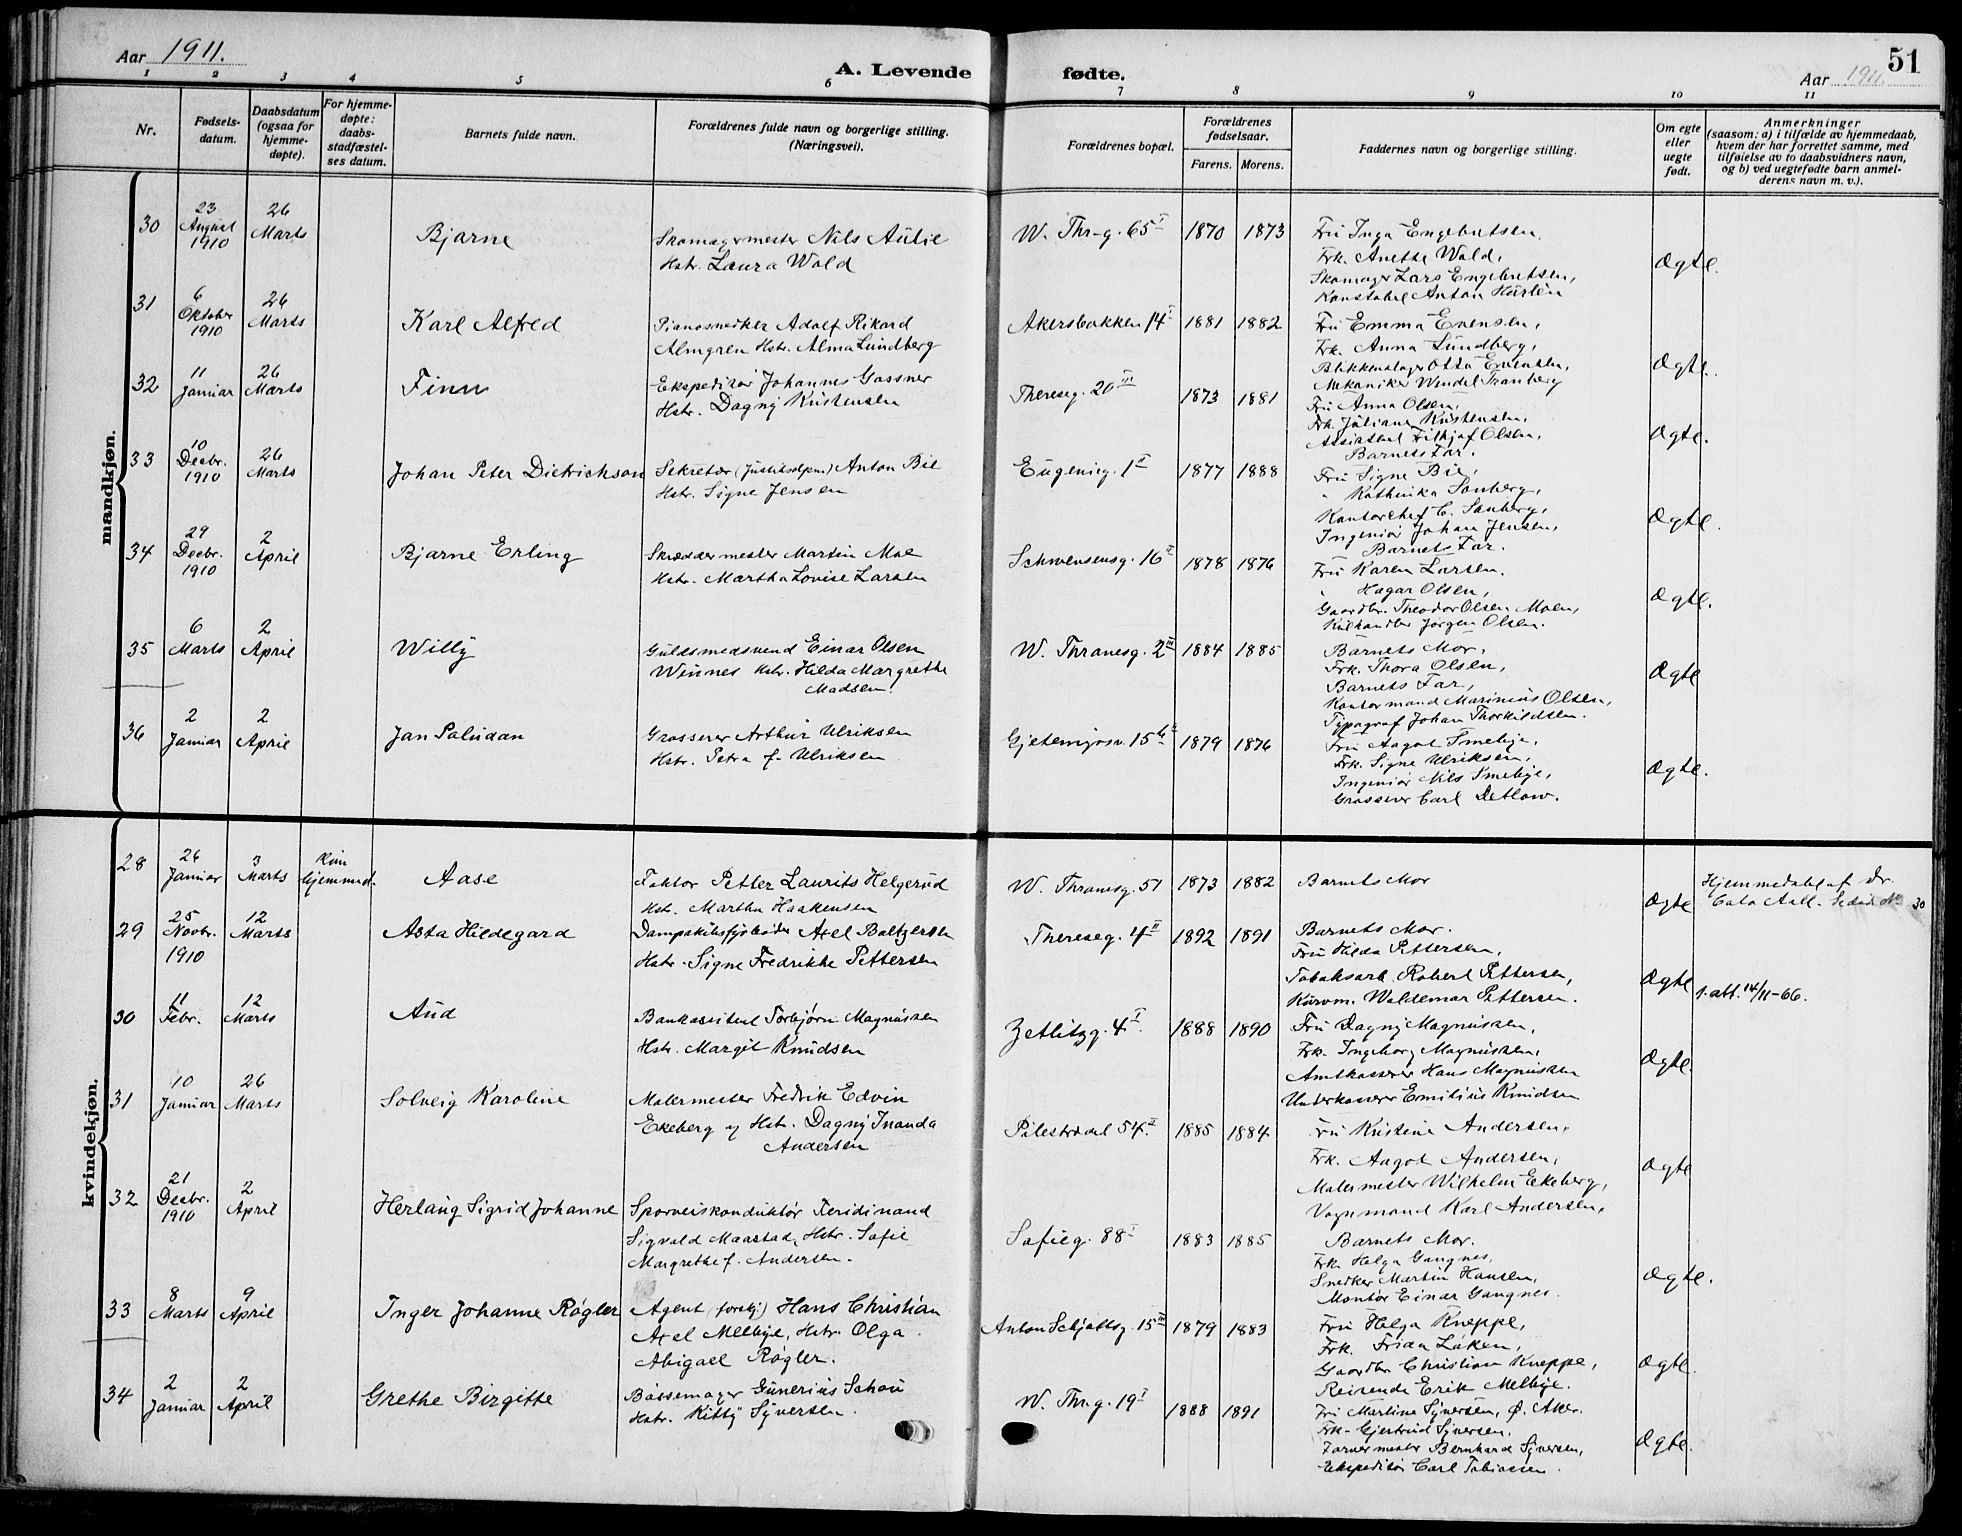 Aar 1911.
A. Levende
fødte.
Aar 1911.
51
1 2 3 4 5 6 7 8 9 10 11
Nr.
Fødsels-
datum.
Daabsdatum
(ogsaa for
hjemme-
døpte).
For hjemme-
døpte:
daabs-
stadfæstel-
ses datum.
Barnets fulde navn.
Forældrenes fulde navn og borgerlige stilling.
(Næringsvei).
Forældrenes bopæl.
Forældrenes
fødselsaar.
Farens. Morens.
Faddernes navn og borgerlige stilling.
Om egte
eller
uegte
født.
Anmerkninger
(saasom: a) i tilfælde av hjemmedaab,
hvem der har forrettet samme, med
tilføielse av to daabsvidners navn,
og b) ved uegtefødte barn anmel-
derens navn m. v.).
mandkjøn.
30 23 August 1910 26 Marts Bjarne
Skomagermester Nils Aulie
Hstr. Laura Wold
W. Thr-g. 65 I 1870 1873
Fru Inga Engebretsen,
Frk. Anette Wold,
Skomager Lars Engebretsen,
Konstabel Anton
Ægte.
31 6 Oktober 1910 26 Marts Karl Alfred
Pianosnedker Adolf Rikard
Almgren Hstr. Alma Lundberg
Akersbakken 14 I 1881 1882
Fru Emma Evensen,
Frk. Anna Lundberg,
Blikkenslager Otto Evensen,
Mekaniker Wendel Tranberg
Ægte.
32 11 Januar 26 Marts Finn
Ekspeditør Johannes Gassner
Hstr. Dagny Kristensen
Thereseg. 20 III 1873 1881
Fru Anna Olsen,
Frk. Juliane Kristensen,
Assistent Frithjof Olsen,
Barnets Far.
Ægte.
33 10 Decbr. 1910 26 Marts Johan Peter Dietrichson
Sekretær (Justitsdpm.) Anton Bie
Hstr. Signe Jensen
Eugenieg. 1 II 1877 1888
Fru Signe Bie,
" Kathinka Sonberg,
Kontorchef C. Sonberg,
Ingeniør Johan Jensen,
Barnets Far.
Ægte.
34 29 Decbr. 1910 2 April Bjarne Erling
Skræddermester Martin Moe
Hstr. Martha Lovise Larsen
Schwensensg. 16 II 1878 1876
Fru Karen Larsen.
" Hagar Olsen,
Gaardbr. Theodor Olsen Moen,
Kulhandler Jørgen Olsen.
Ægte.
35 6 Marts 2 April Willy
Guldsmedsvend Einar Olsen
Winnes Hstr. Hilda Margrethe
Madsen.
W. Thranesg. 2 III 1884 1885
Barnets Mor,
Frk. Thora Olsen,
Barnets Far,
Kontormand Marinius Olsen,
Typograf Johan Thorkildsen.
Ægte
36 2 Januar 2 April Jan Paludan
Grosserer Arthur Ulriksen
Hstr. Petra f. Ulriksen
Gjetemyrsv. 15 b II 1879 1876
Fru Aagot Smebye,
Frk. Signe Ulriksen,
Ingeniør Nils Smebye,
Grosserer Carl Detlow.
Ægte.
kvindekjøn.
28 26 Januar 3 Marts Kun hjemmed. Aase
Faktor Petter Laurits Helgerud
Hstr. Martha Haakensen
W. Thranesg. 51 1873 1882
Barnets Mor
Ægte
Hjemmedøbt af Dr.
Cato Aall. 30
29 25 Novbr. 1910 12 Marts Asta Hildegard
Axel Baltzersen
Hstr. Signe Fredrikke Pettersen
Thereseg. 4 II 1892 1891
Barnets Mor.
Fru Hilda Pettersen,
Tobaksarb. Robert Pettersen,
Kurvm. Waldemar Pettersen.
Ægte
1. att. 14/11-66.
30 11 Febr. 12 Marts Aud
Bankassistent Torbjørn Magnussen
Hstr. Margit Knudsen
Zetlitzg. 4 I 1888 1890
Fru Dagny Magnussen,
Frk. Ingeborg Magnussen,
Amtkasserer Hans Magnussen
Underkasserer Emilius Knudsen
Ægte.
31 10 Januar 26 Marts Solveig Karoline
Malermester Fredrik Edvin
Ekeberg og Hstr. Dagny Inanda
Andersen
Pilestrædet 54 II 1885 1884
Fru Kristine Andersen,
Frk. Aagot Andersen,
Malermester Wilhelm Ekeberg,
Vognmand Karl Andersen,
Ægte
32 21 Decbr. 1910 2 April Herlaug Sigrid Johanne
Sporveiskonduktør Feridinand
Sigvald Maastad, Hstr. Sofie
Margrethe f. Andersen.
Sofieg. 88 I 1883 1885
Barnets Mor.
Frk. Helga Gangnes,
Snedker Martin Hansen,
Montør Einar Gangnes.
Ægte.
33 8 Marts 9 April Inger Johanne Røgler
Agent (forskj.) Hans Christian
Axel Melbye, Hstr. Olga
Abigael Røgler.
Anton Schjøttsg. 15 III 1879 1883
Fru Helga Kneppe,
Frk. Frida Løken,
Gaardbr. Christian Kneppe,
Reisende Erik Melbye.
Ægte.
34 2 Januar 2 April Grethe Birgitte
Bøssemager Gunerius Schou
Hstr. Kitty Syversen.
W. Thr.g. 19 I 1888 1891
Fru Martine Syversen, Ø. Aker.
Frk. Gjertrud Syversen,
Farvermester Bernhard Syversen,
Ekspeditør Carl Tobiassen.
Ægte.